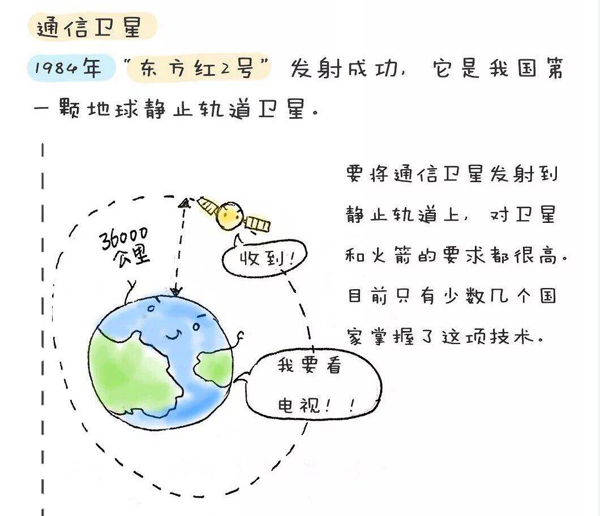 通信卫星
1984年“东方红2号”发射成功，它是我国第
一颗地球静止轨道卫星。
36000
公里
收到！
要将通信卫星发射到
静止轨道上，对卫星
和火箭的要求都很高。
目前只有少数几个国
家掌握了这项技术。
我要看
电视！！